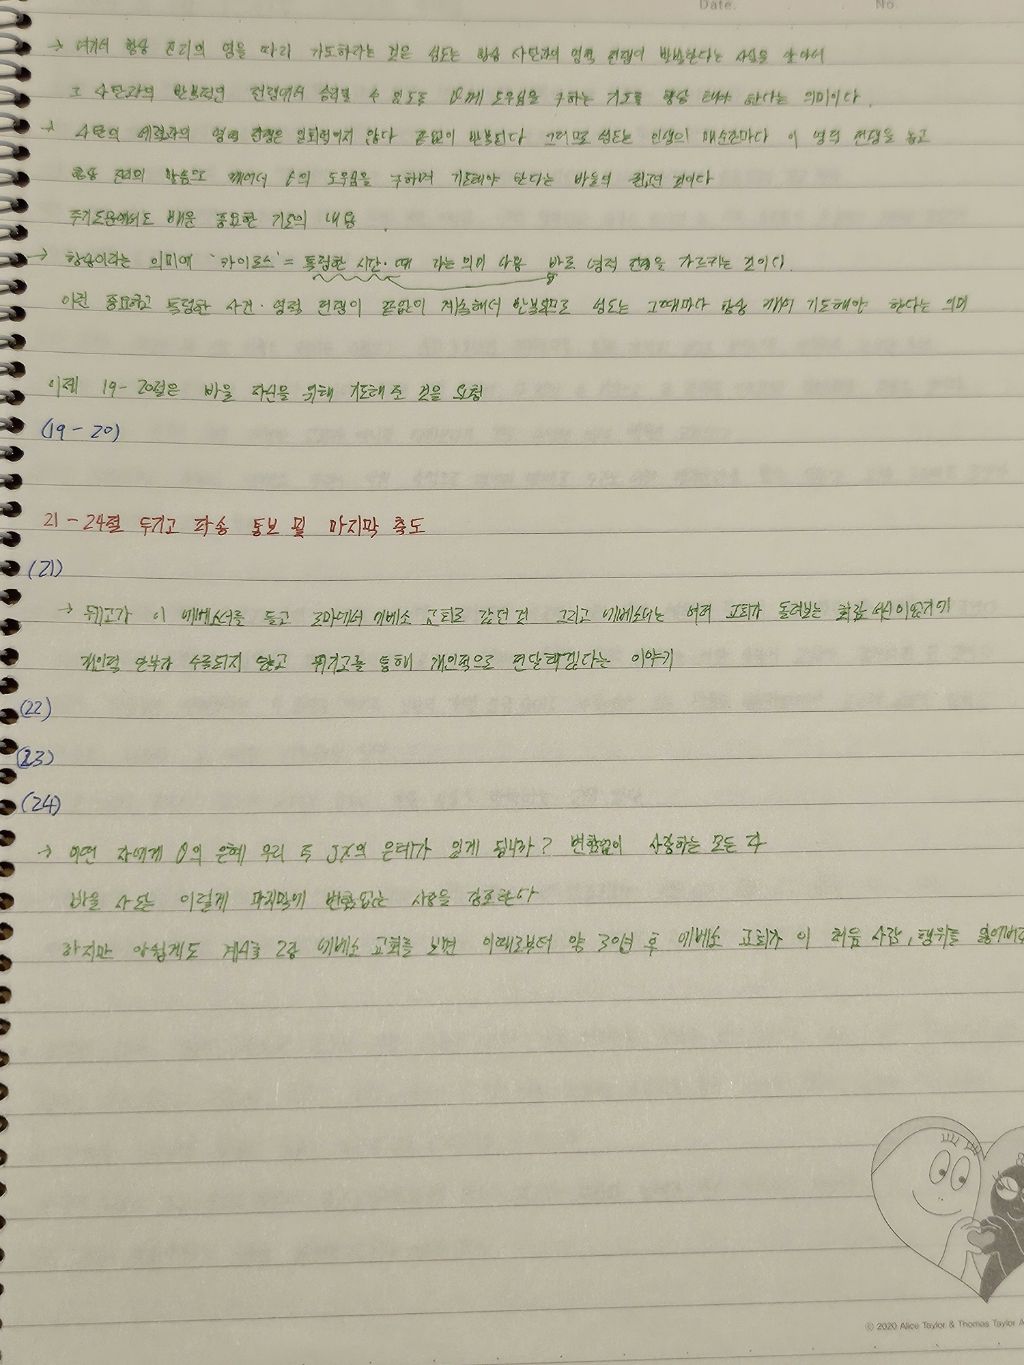 Date. No.
→ 여기서 항상 진리의 영을 따라 기도하라는 것은 성도는 항상 사단과의 영적 전쟁이 반발한다는 사실을 알아서
그 사단과의 반복적인 전쟁에서 승리할 수 있도록 θ께 도우심을 구하는 기도를 항상 해야 한다는 의미이다.
→ 사단의 세력과의 영적 전쟁은 일회적이지 않다 끝없이 반복된다 그러므로 성도는 인생의 매순간마다 이 영적 전쟁을 놓고
항상 진리의 말씀으로 깨어서 θ의 도우심을 구하며 기도해야 한다는 바울의 권면인 것이다
주기도문에서도 배운 중요한 기도의 내용.
→ 항상이라는 의미에 '카이로스' = 특정한 시간·때 라는 의미 사용 바로 영적 전쟁을 가르키는 것이다.
이런 중요하고 특정한 사건·영적 전쟁이 끝없이 계속해서 반복되므로 성도는 그때마다 항상 깨어 기도해야 한다는 의미
이제 19-20절은 바울 자신을 위해 기도해 줄 것을 요청
(19-20)
21-24절 두기고 파송 통보 및 마지막 축도
(21)
→ 두기고가 이 에베소서를 들고 로마에서 에베소 교회로 갔던 것 그리고 에베소서는 여러 교회가 돌려보는 회람 서신이었기에
개인적 안부가 수록되지 않고 두기고를 통해 개인적으로 전달하겠다는 이야기
(22)
(23)
(24)
→ 어떤 자에게 θ의 은혜 우리 주 JX의 은혜가 있게 됩니까? 변함없이 사랑하는 모든 자
바울 사도는 이렇게 마지막에 변함없는 사랑을 강조한다
하지만 아쉽게도 계시록 2장 에베소 교회를 보면 이때로부터 약 30년 후 에베소 교회가 이 처음 사랑, 행위를 잃어버려
© 2020 Alice Taylor & Thomas Taylor